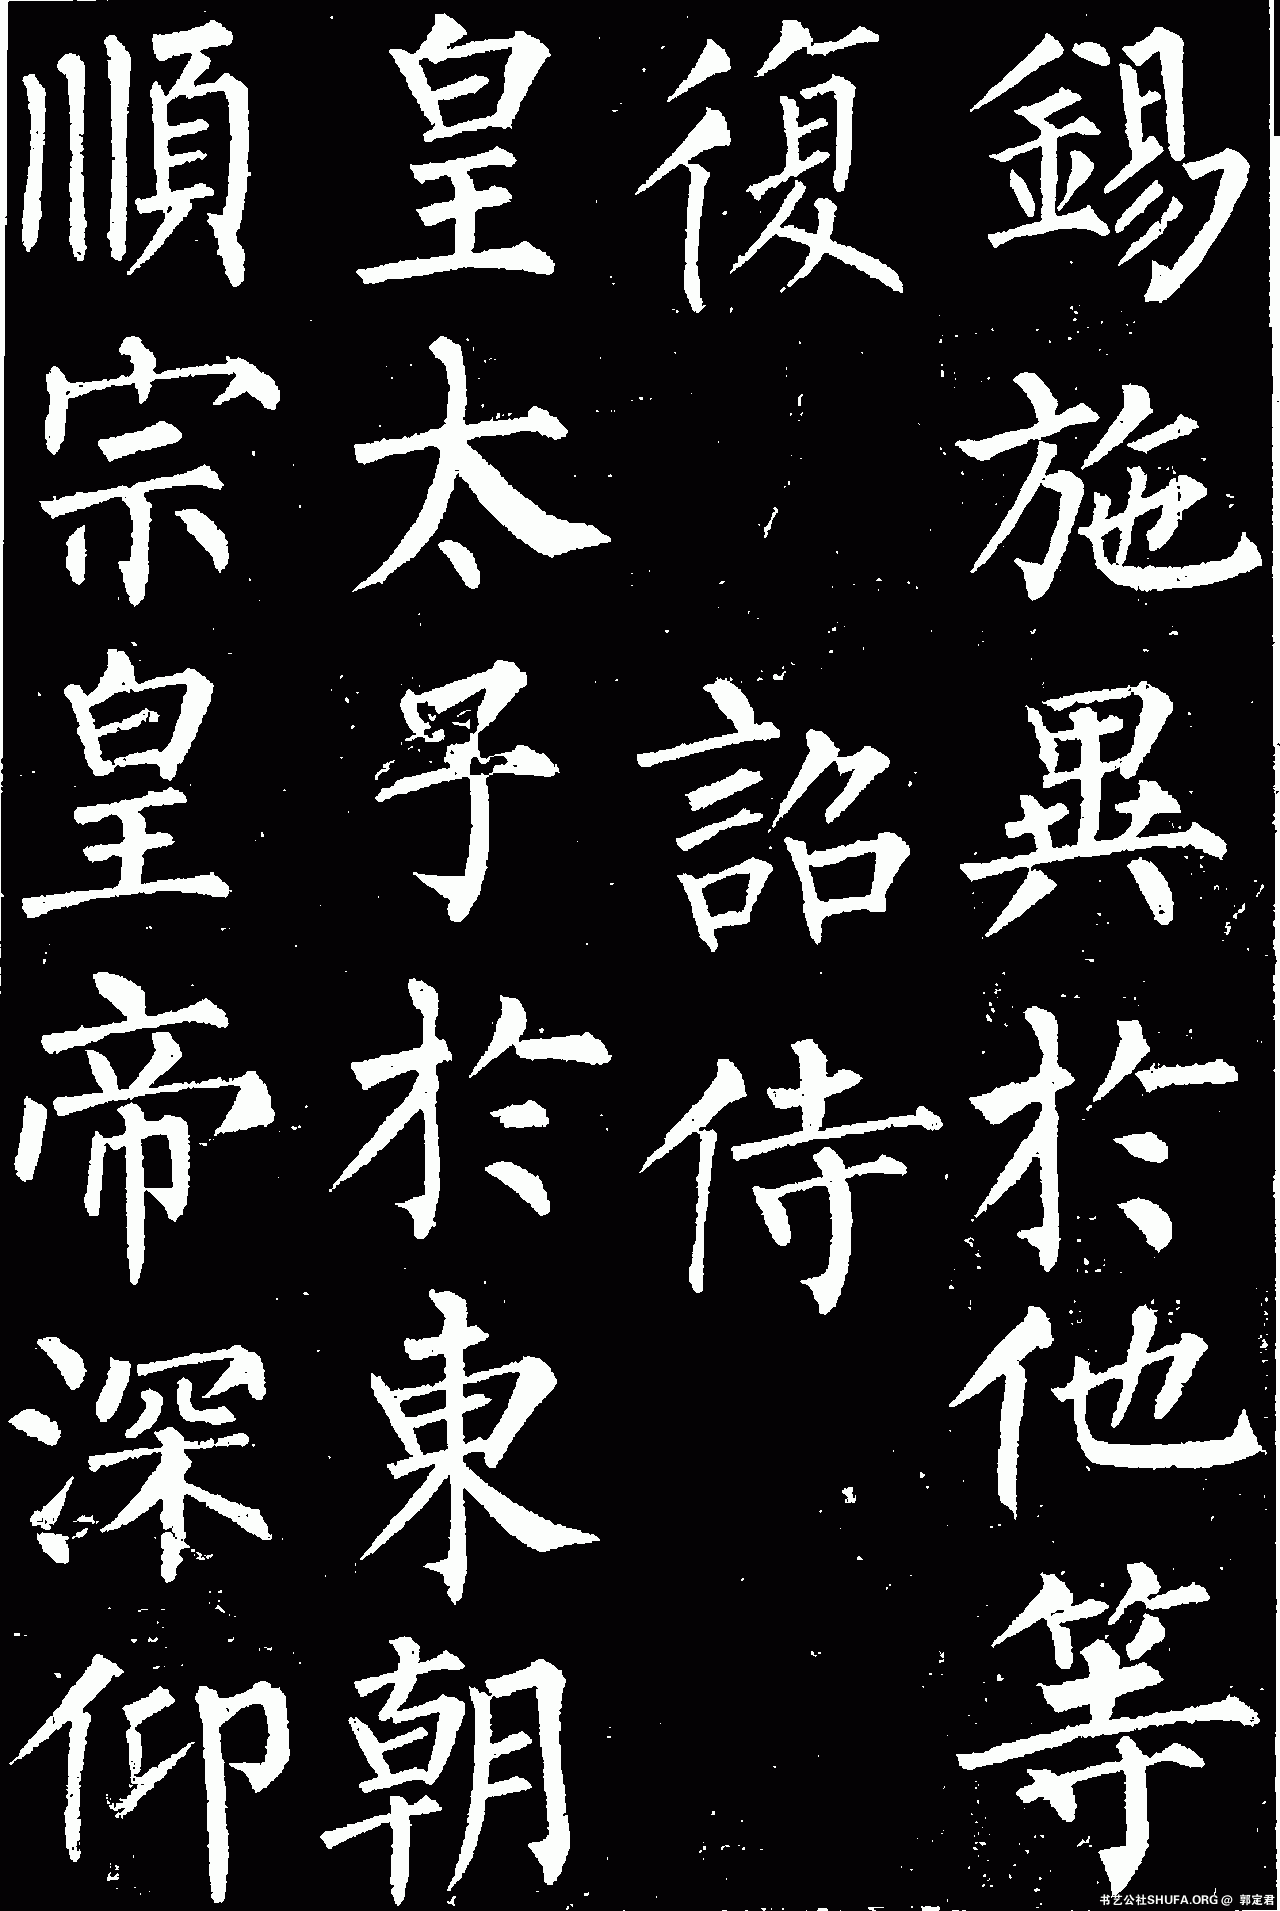 錫施異於他等
復詔侍
皇太子於東朝
順宗皇帝深仰
书艺公社SHUFA.ORG @ 郭定君